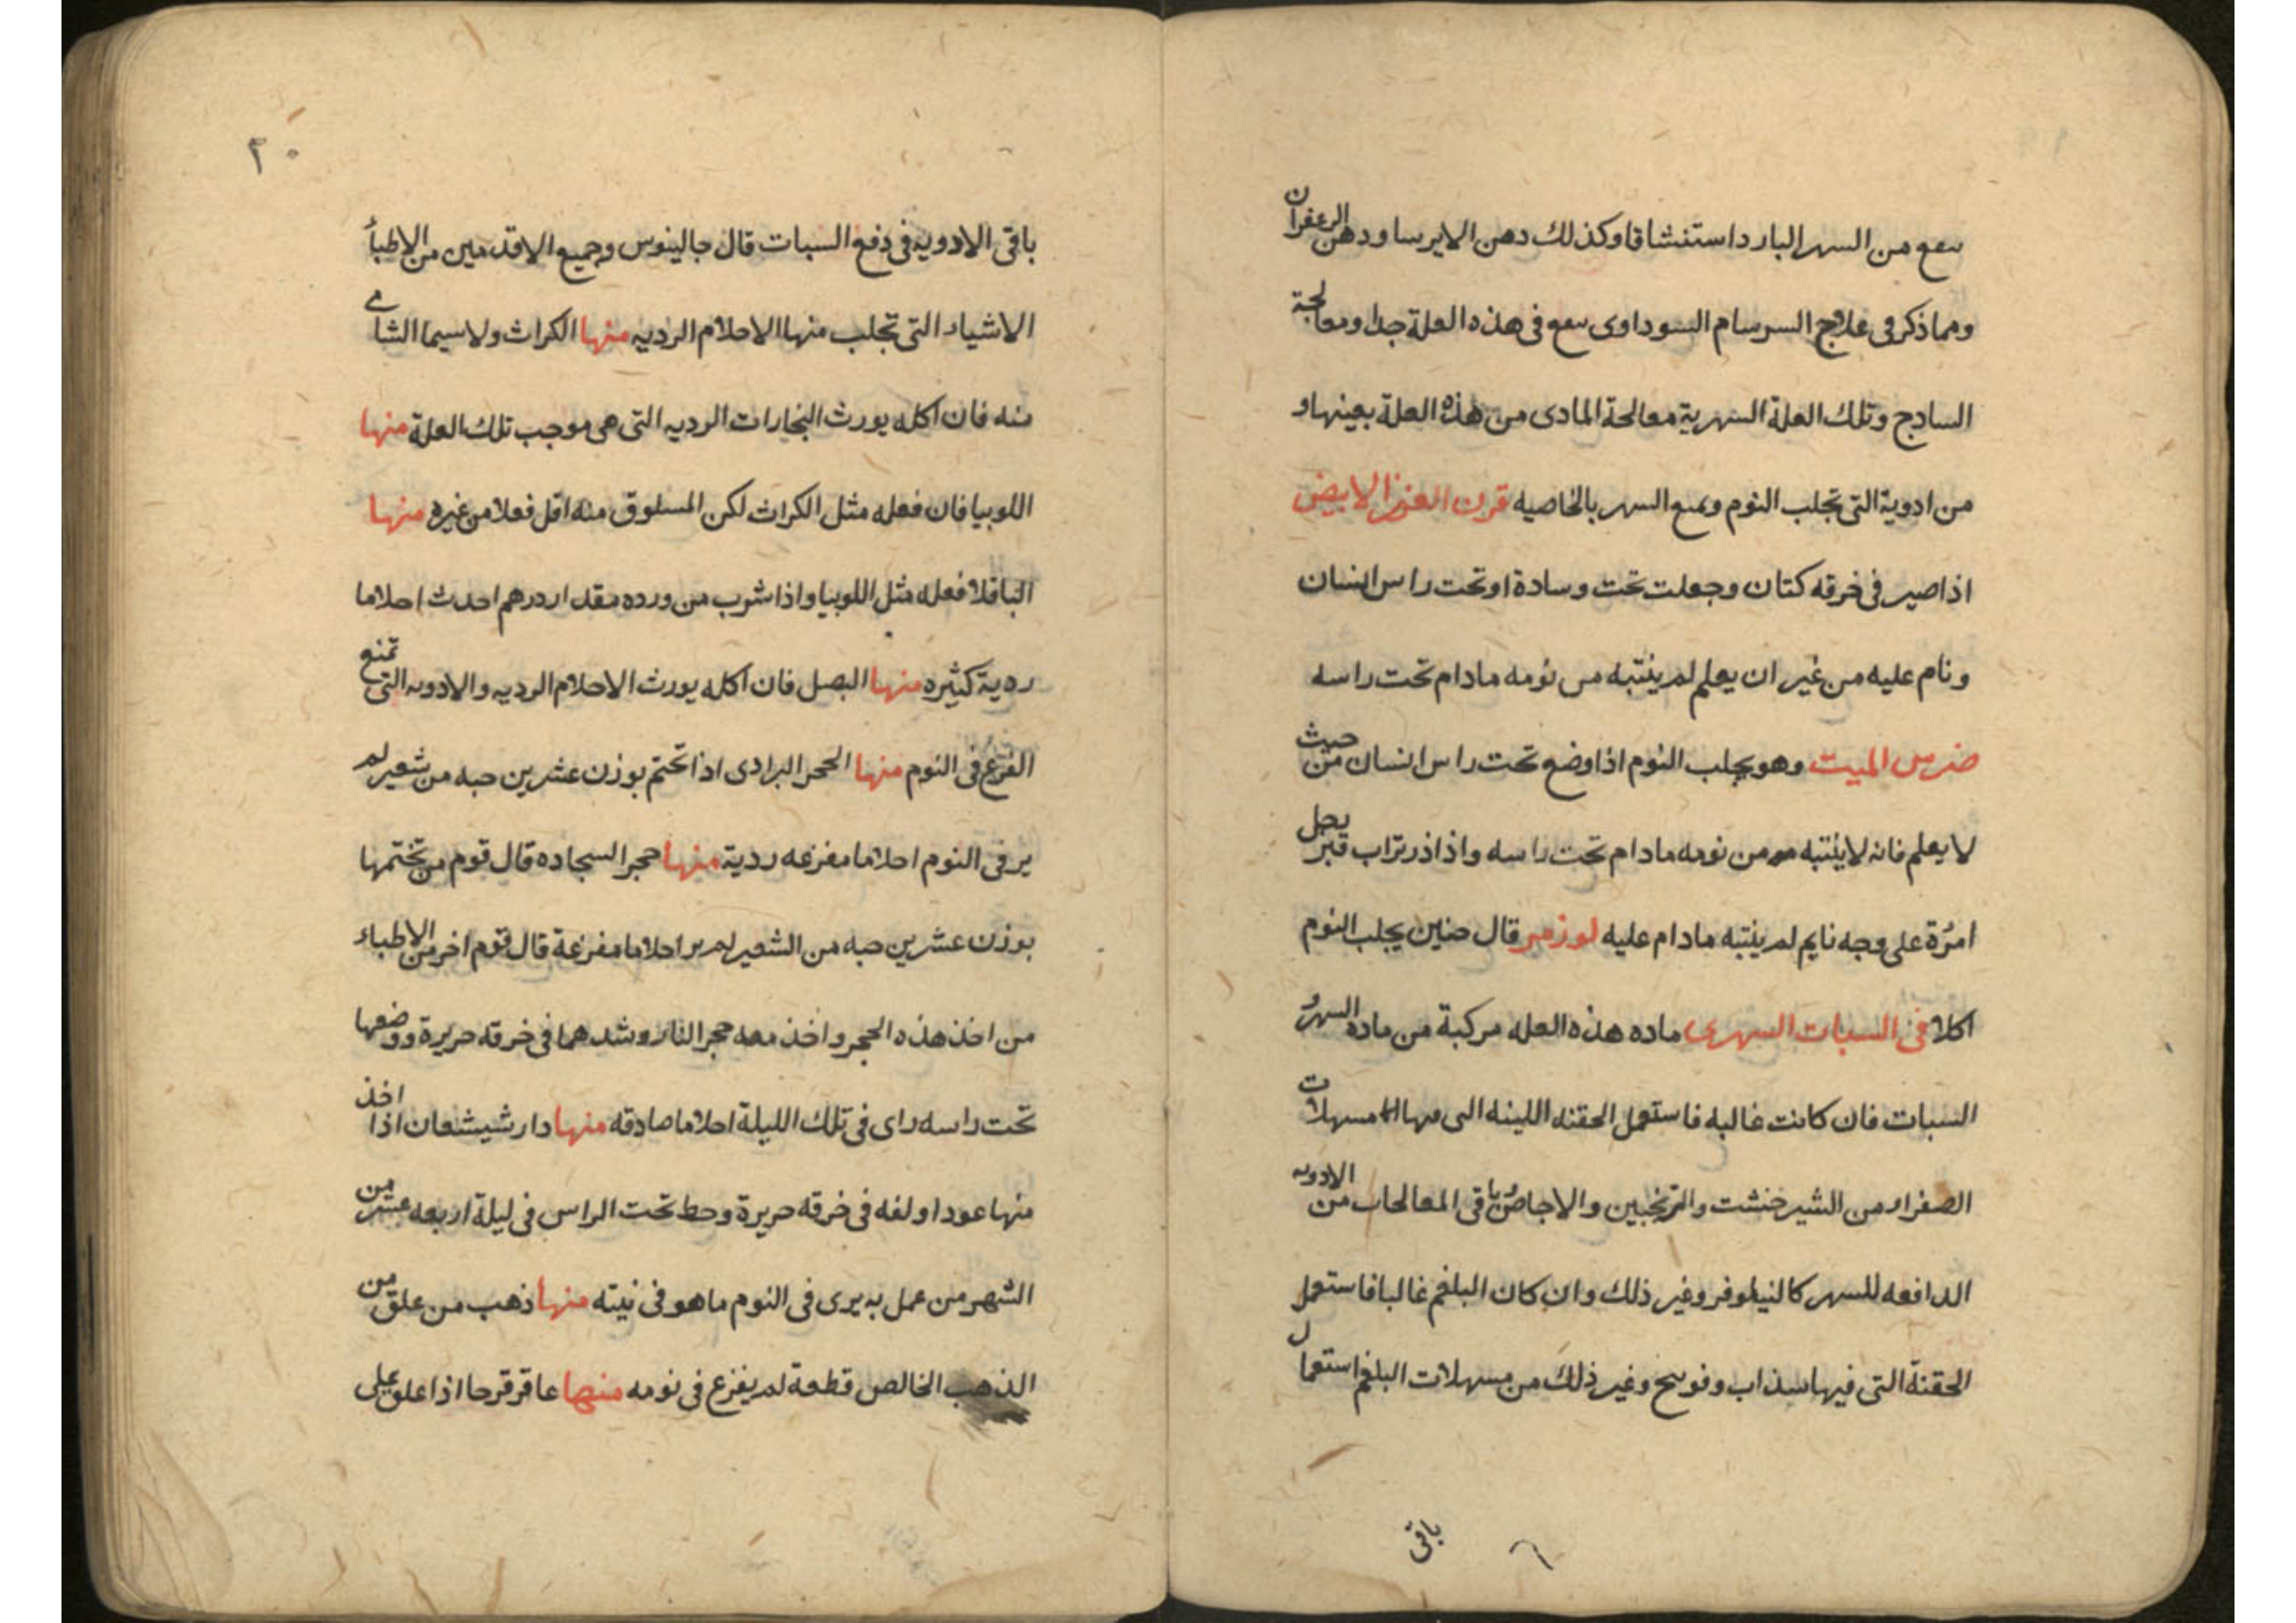 ينفع من السهر البارد استنشاقا وكذلك دهن الايرسا ودهن الزعفران
ومما ذكر فى علاج السرسام السوداوى ينفع فى هذه العلة جدا ومعالجة
الساذج وتلك العلة السهرية معالجة المادى من هذه العلة بعينها و
من ادوية التى تجلب النوم وتمنع السهر بالخاصيه قرن العنز الابيض
اذا صير فى خرقه كتان وجعلت تحت وسادة او تحت راس انسان
ونام عليه من غير ان يعلم لم ينتبه من نومه مادام تحت راسه
ضرس الميت وهو يجلب النوم اذا وضع تحت راس انسان من حيث
لا يعلم فانه لا ينتبه من نومه مادام تحت راسه واذا ذر تراب قبر رجل
امرة على وجه نايم لم ينتبه مادام عليه لوز مر قال حنين يجلب النوم
اكلا فى السبات السهرى ماده هذه العله مركبة من ماده السهر و
السبات فان كانت غالبه فاستعمل الحقنه اللينه التى فيها مسهلات
الصفراء من الشيرخشت والترنجبين والاجاص و باقى المعالجات من الادويه
الدافعه للسهر كالنيلوفر وغير ذلك وان كان البلغم غالبا فاستعمل
الحقنة التى فيها سذاب وفوتنج وغير ذلك من مسهلات البلغم استعمال
باقى
٢٠
باقى الادويه فى دفع السبات قال جالينوس وجميع الاقدمين من الاطبأ
الاشياء التى تجلب منها الاحلام الرديه منها الكراث ولاسيما الشامى
منه فان اكله يورث البخارات الرديه التى هى موجب تلك العلة منها
اللوبيا فان فعله مثل الكراث لكن المسلوق منه اقل فعلا من غيره منها
الباقلا فعله مثل اللوبيا واذا شرب من ورده مقدار درهم احدث احلاما
ردية كثيره منها البصل فان اكله يورث الاحلام الرديه والادويه التى تمنع
الفزع فى النوم منها الحجر البرادى اذا تختم بوزن عشرين حبه من شعير لم
ير فى النوم احلاما مفزعه ردية منها حجر السجاده قال قوم من تختمها
بوزن عشرين حبه من الشعير لم ير احلاما مفزعة قال قوم اخر من الاطباء
من اخذ هذه الحجر واخذ معه حجر النار وشدهما فى خرقه حريرة ووضعها
تحت راسه راى فى تلك الليلة احلاما صادقه منها دارشيشعان اذا اخذ
منها عودا ولفه فى خرقه حريرة وحط تحت الراس فى ليلة اربعه عشر من
الشهر من عمل به يرى فى النوم ما هو فى نيته منها ذهب من علق من
الذهب الخالص قطعة لم يفزع فى نومه منها عاقرقرحا اذا علق على